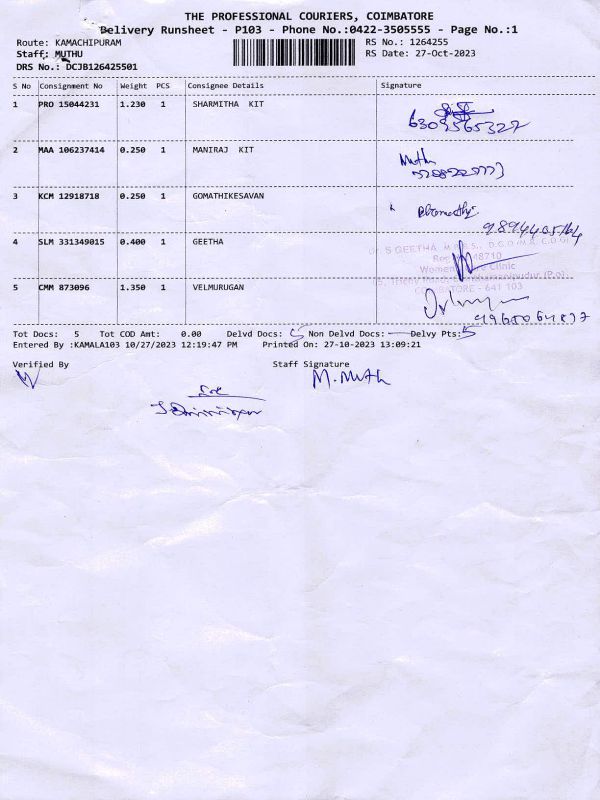 THE PROFESSIONAL COURIERS, COIMBATORE
Delivery Runsheet - P103 - Phone No.:0422-3505555 - Page No.:1
Route: KAMACHIPURAM RS No.: 1264255
Staff: MUTHU RS Date: 27-Oct-2023
DRS No.: DCJB126425501
S No Consignment No Weight PCS Consignee Details Signature
1 PRO 15044231 1.230 1 SHARMITHA KIT
6309565327
2 MAA 106237414 0.250 1 MANIRAJ KIT Muthu
3 KCM 12918718 0.250 1 GOMATHIKESAVAN
9894405164
4 SLM 331349015 0.400 1 GEETHA
Dr. S GEETHA M.B.B.S., D.G.O
18710
Clinic
COIMBATORE - 641 103
5 CMM 873096 1.350 1 VELMURUGAN
Tot Docs: 5 Tot COD Amt: 0.00 Delvd Docs: 5 Non Delvd Docs: — Delvy Pts: 5
Entered By :KAMALA103 10/27/2023 12:19:47 PM Printed On: 27-10-2023 13:09:21
Verified By Staff Signature
M. Muth